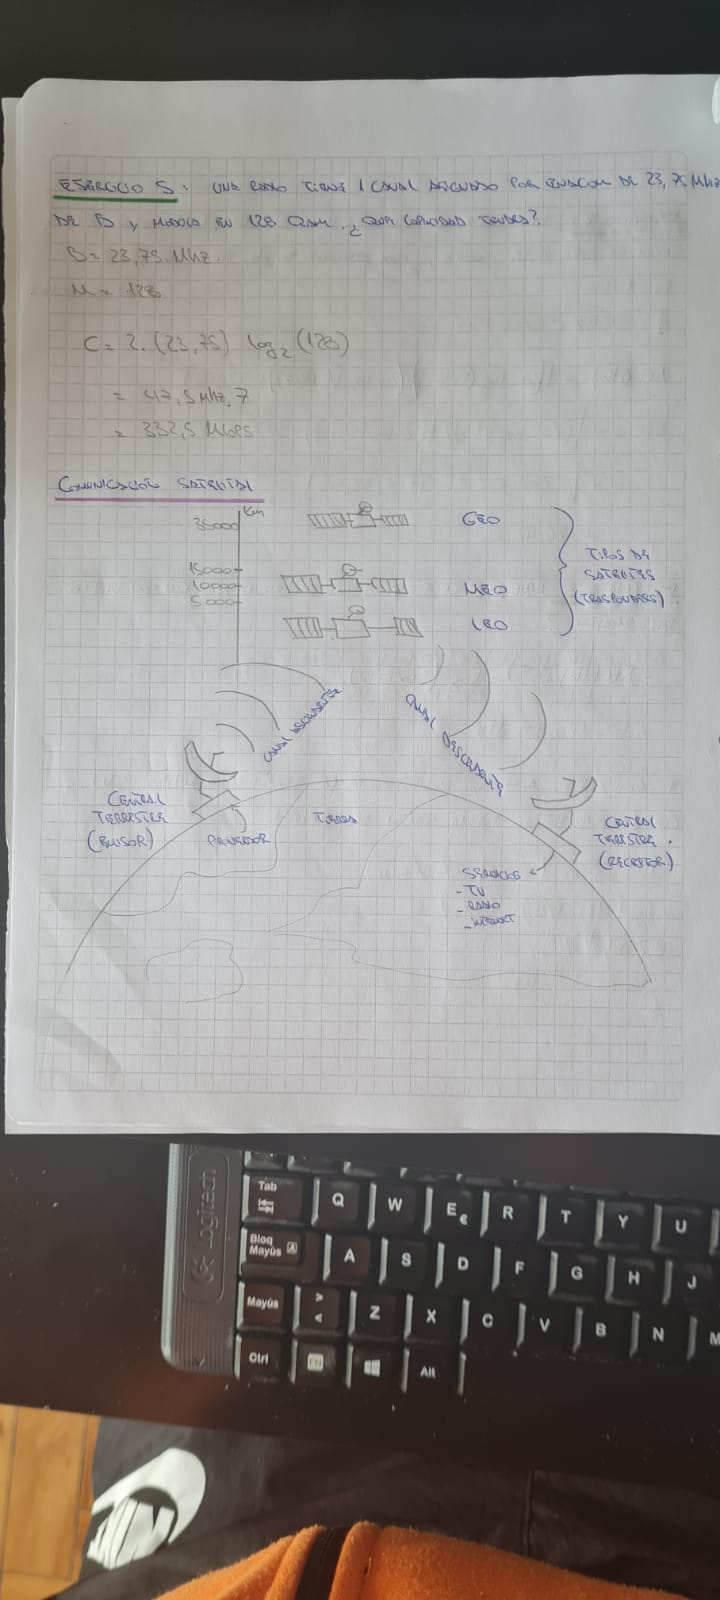 EJERCICIO 5: UNA RADIO TIENE 1 CANAL ASIGNADO POR ENACOM DE 23,75 Mhz
DE B y MODULA EN 128 QAM. ¿QUE CAPACIDAD TENDES?
B = 23,75 Mhz.
M = 128
C = 2. (23,75) log2 (128)
= 47,5 Mhz. 7
= 332,5 Mbps
COMUNICACIÓN SATELITAL
Km
35000
GEO
15000
10000
5000
MEO
LEO
TIPOS DE
SATELITES
(TRASPONDERS)
CANAL ASCENDENTE
CANAL DESCENDENTE
CENTRAL
TERRESTRE
(EMISOR)
PROVEEDOR
TIERRA
CENTRAL
TERRESTRE.
(RECEPTOR)
SERVICIOS
- TV
- RADIO
- INTERNET
Logitech
Tab
Q W E € R T Y U
Bloq
Mayús A
A S D F G H J
Mayús
> <
Z X C V B N M
Ctrl
Alt